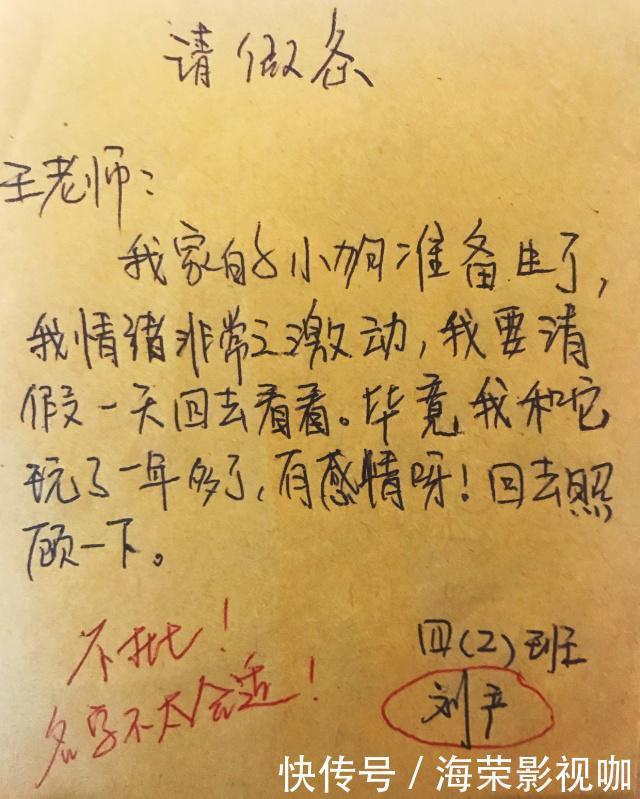 请假条
王老师：
我家的小狗准备生了，
我情绪非常之激动，我要请
假一天回去看看。毕竟我和它
玩了一年多了，有感情呀！回去照
顾一下。
四(2)班
刘产
不批！
名字不太合适！
快传号/海荣影视咖